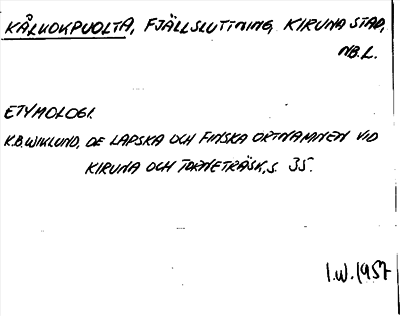 KÅLKOKPUOLTA, FJÄLLSLUTTNING, KIRUNA STAD,
NB.L.
ETYMOLOGI.
K.B.WIKLUND, DE LAPSKA OCH FINSKA ORTNAMNEN VID
KIRUNA OCH TORNETRÄSK, S. 35.
I.W. 1957